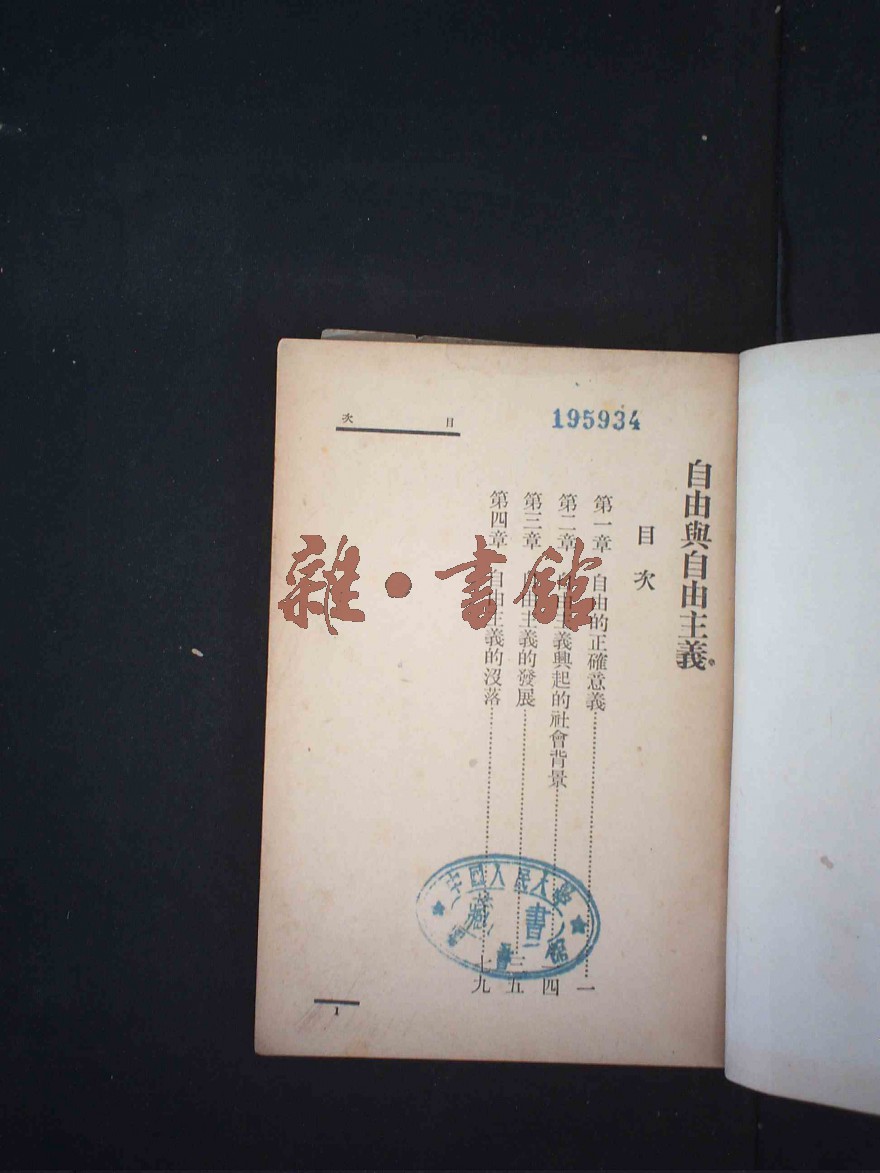 自由與自由主義
目次
195934
第一章 自由的正確意義 一
第二章 自由主義興起的社會背景 四
第三章 自由主義的發展
第四章 自由主義的沒落
目次
1
雜·書館
中國人民大學
圖書館
藏書